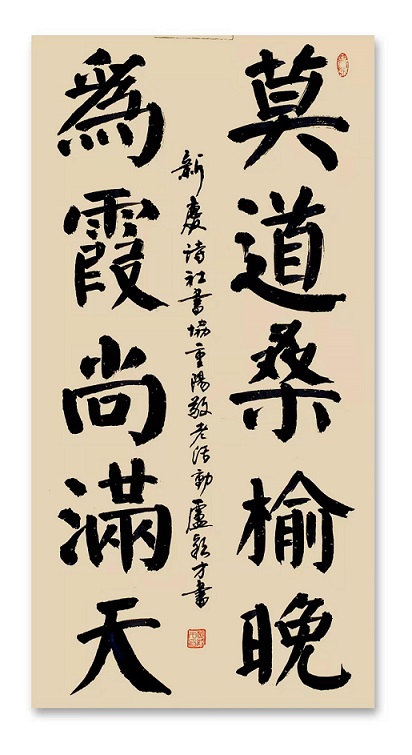 莫道桑榆晚
為霞尚滿天
新慶詩社書協重陽敬老活動盧
才書